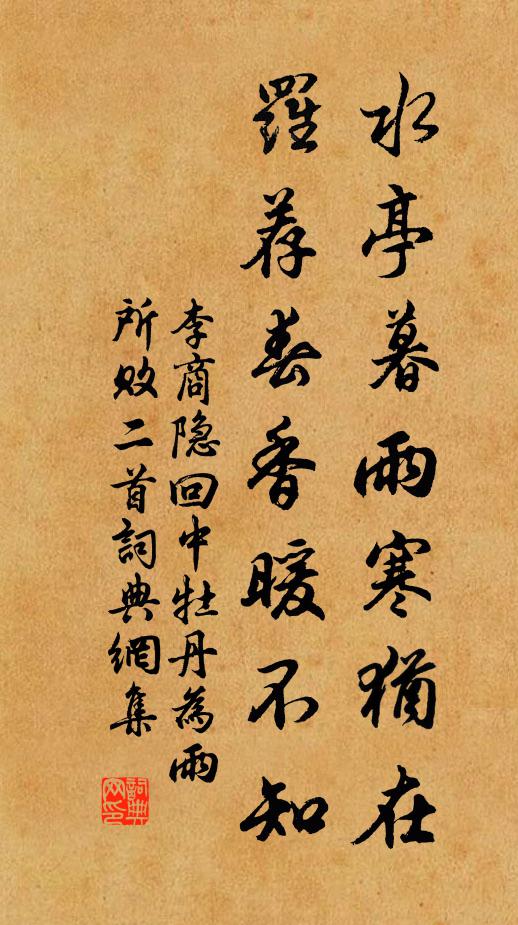 水亭暮雨寒猶在
羅荐春香暖不知
李商隐回中牡丹為雨
所敗二首詞典網集
詞典网印